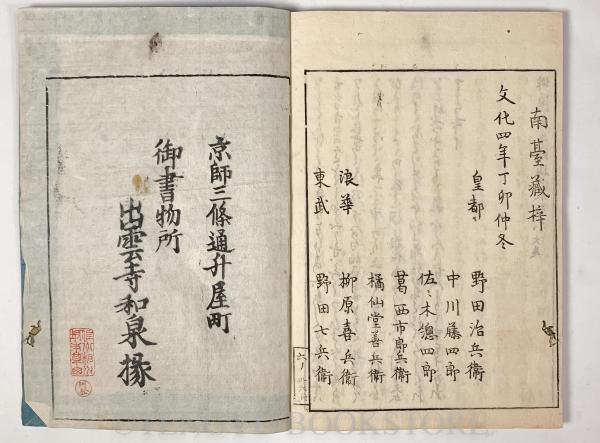 南臺藏梓
文化四年丁卯仲冬
皇都 野田治兵衛
中川藤四郎
佐々木總四郎
葛西市郎兵衛
橘仙堂善兵衛
浪華 柳原喜兵衛
東武 野田七兵衛
六ノ
京師三條通升屋町
御書物所
出雲寺和泉掾